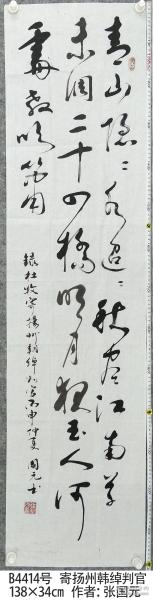 青山隐々水迢々秋尽江南草
未凋二十四橋明月夜玉人何
處教吹簫
錄杜牧寄揚州韓綽判官丙申仲夏 國元书
B4414号 寄扬州韩绰判官
138×34cm 作者:张国元